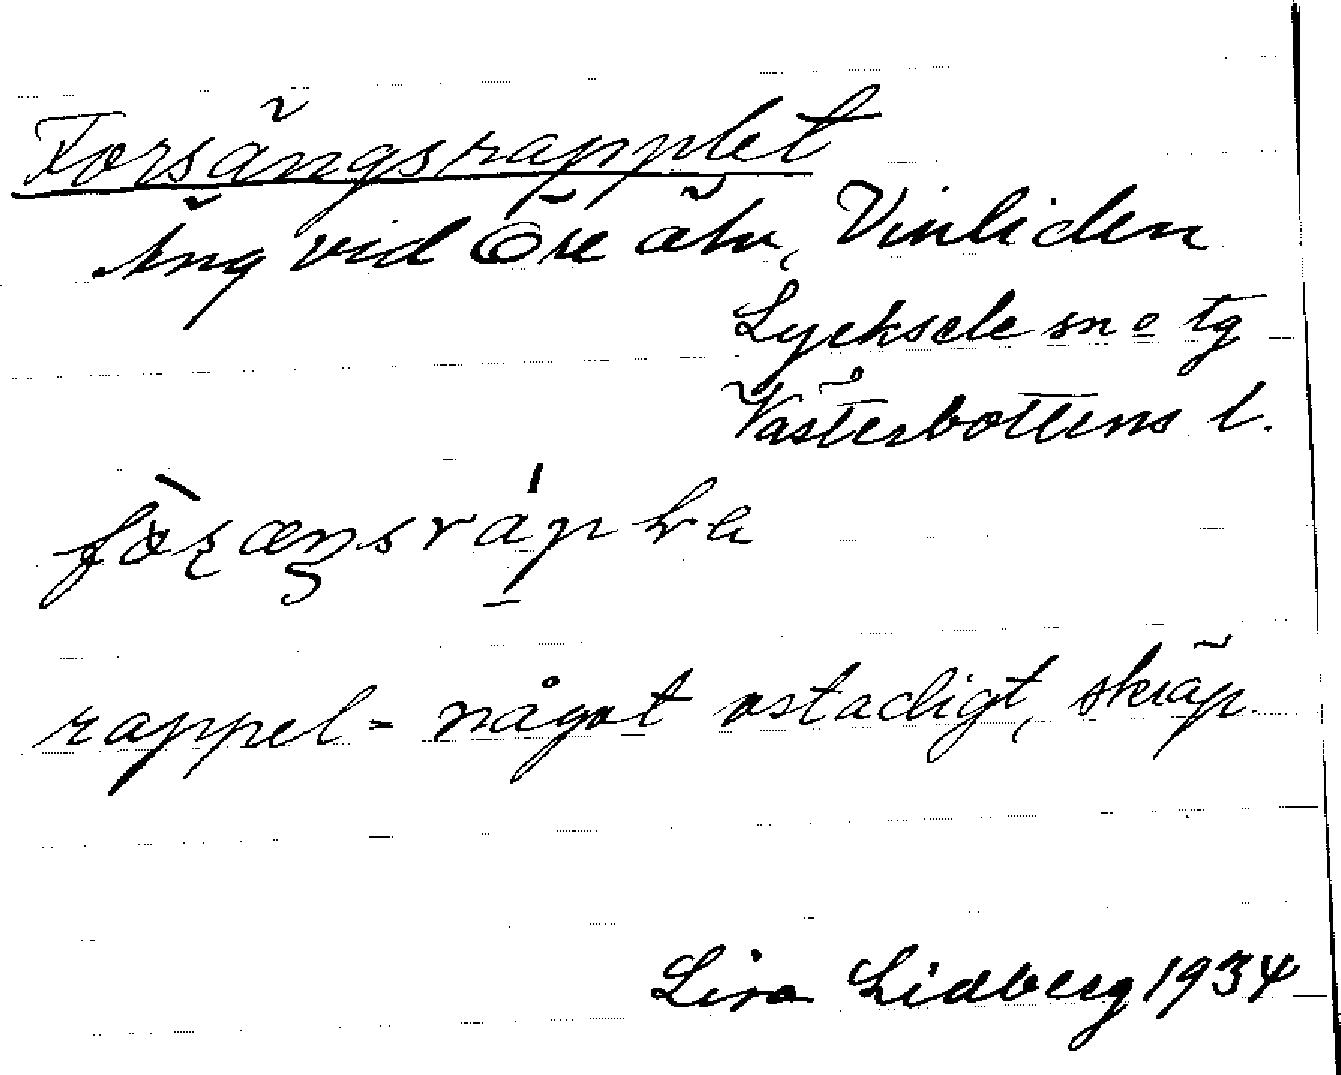 Forsängsrapplet
Äng vid Öre älv, Vinliden
Lycksele sn o tg
Västerbottens l.
rappel = något ostadigt, skräp
Lisa Lidberg 1934